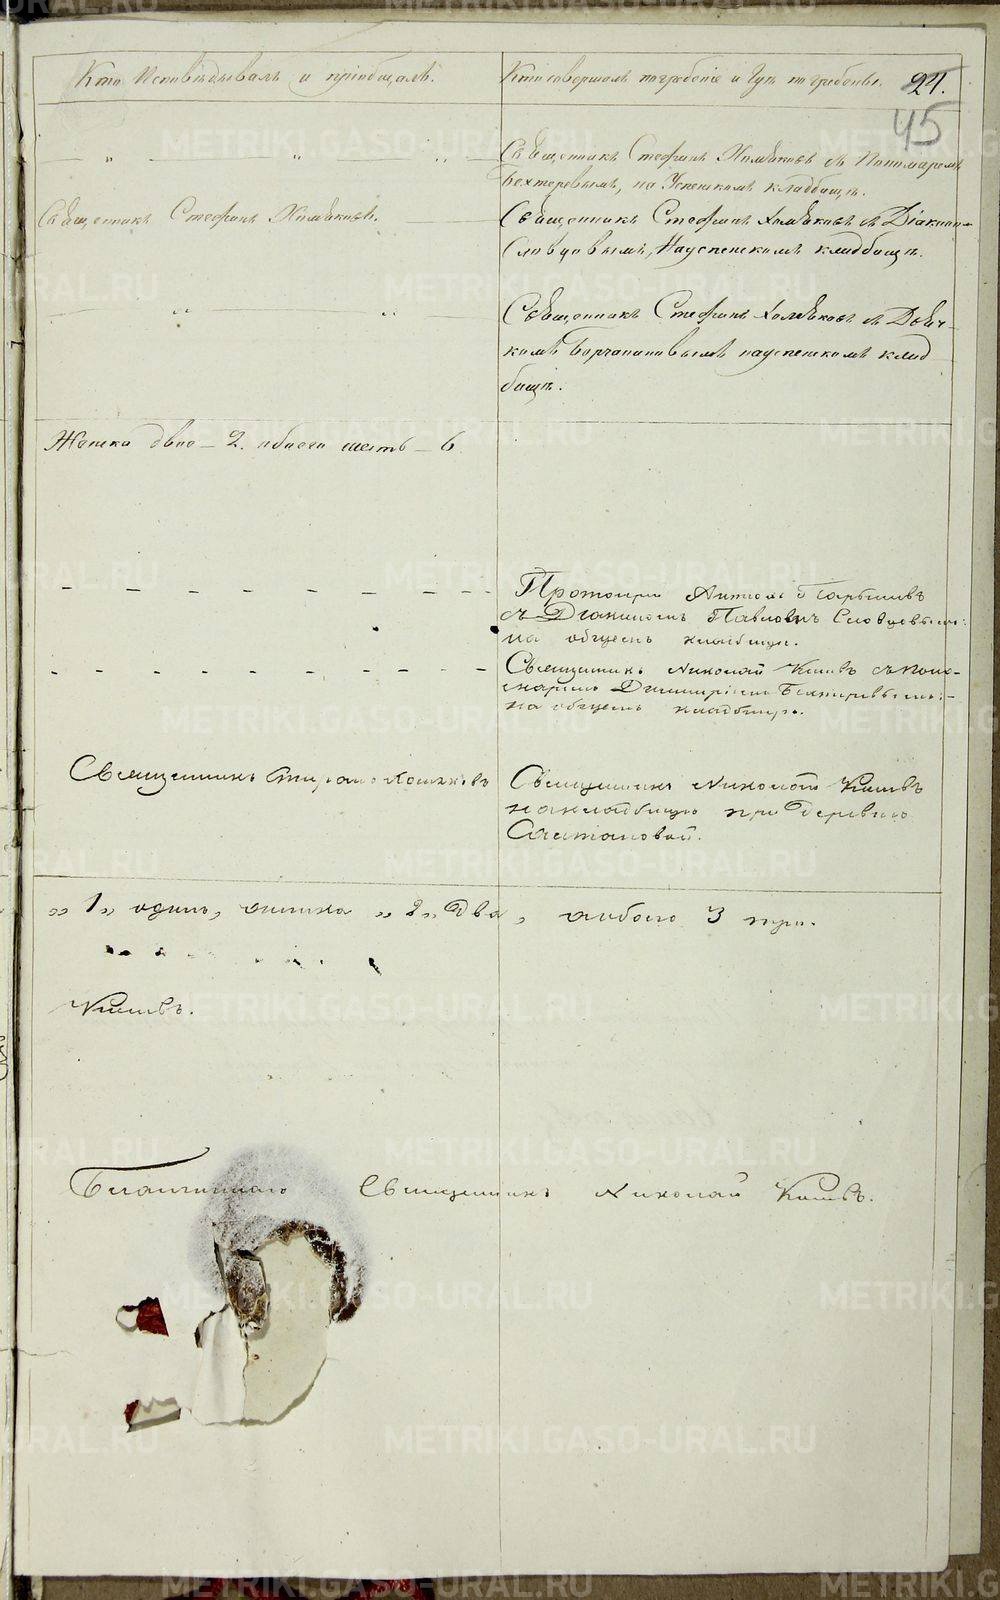 Кто Исповѣдывалъ и пріобщалъ.
Кто совершалъ погребеніе и Гдѣ погребены.
24.
45
Священникъ Стефанъ Хомяковъ съ Пономаремъ
Бехтеревымъ, на Успенскомъ кладбищѣ.
Священникъ Стефанъ Хомяковъ.
Священникъ Стефанъ Хомяковъ съ Діакономъ
Словцовымъ, На успенскомъ кладбищѣ.
Священникъ Стефанъ Хомяковъ съ Дьяч-
комъ науспенскомъ клад
бищѣ.
Женска двѣ – 2. обоего шесть – 6
Протоіерей
съ Діакономъ Павломъ Словцовымъ:
на общемъ кладбищѣ.
Священникъ Николай съ поно-
маремъ Димитріемъ Бехтеревымъ:
на общемъ кладбищѣ.
Священникъ Стефанъ Хомяковъ
Священникъ Николай
на кладбищѣ при деревнѣ
„ 1 „ одинъ, женска „ 2 „ два, обоего 3 три.
Благочинный Священникъ Николай
METRIKI.GASO-URAL.RU